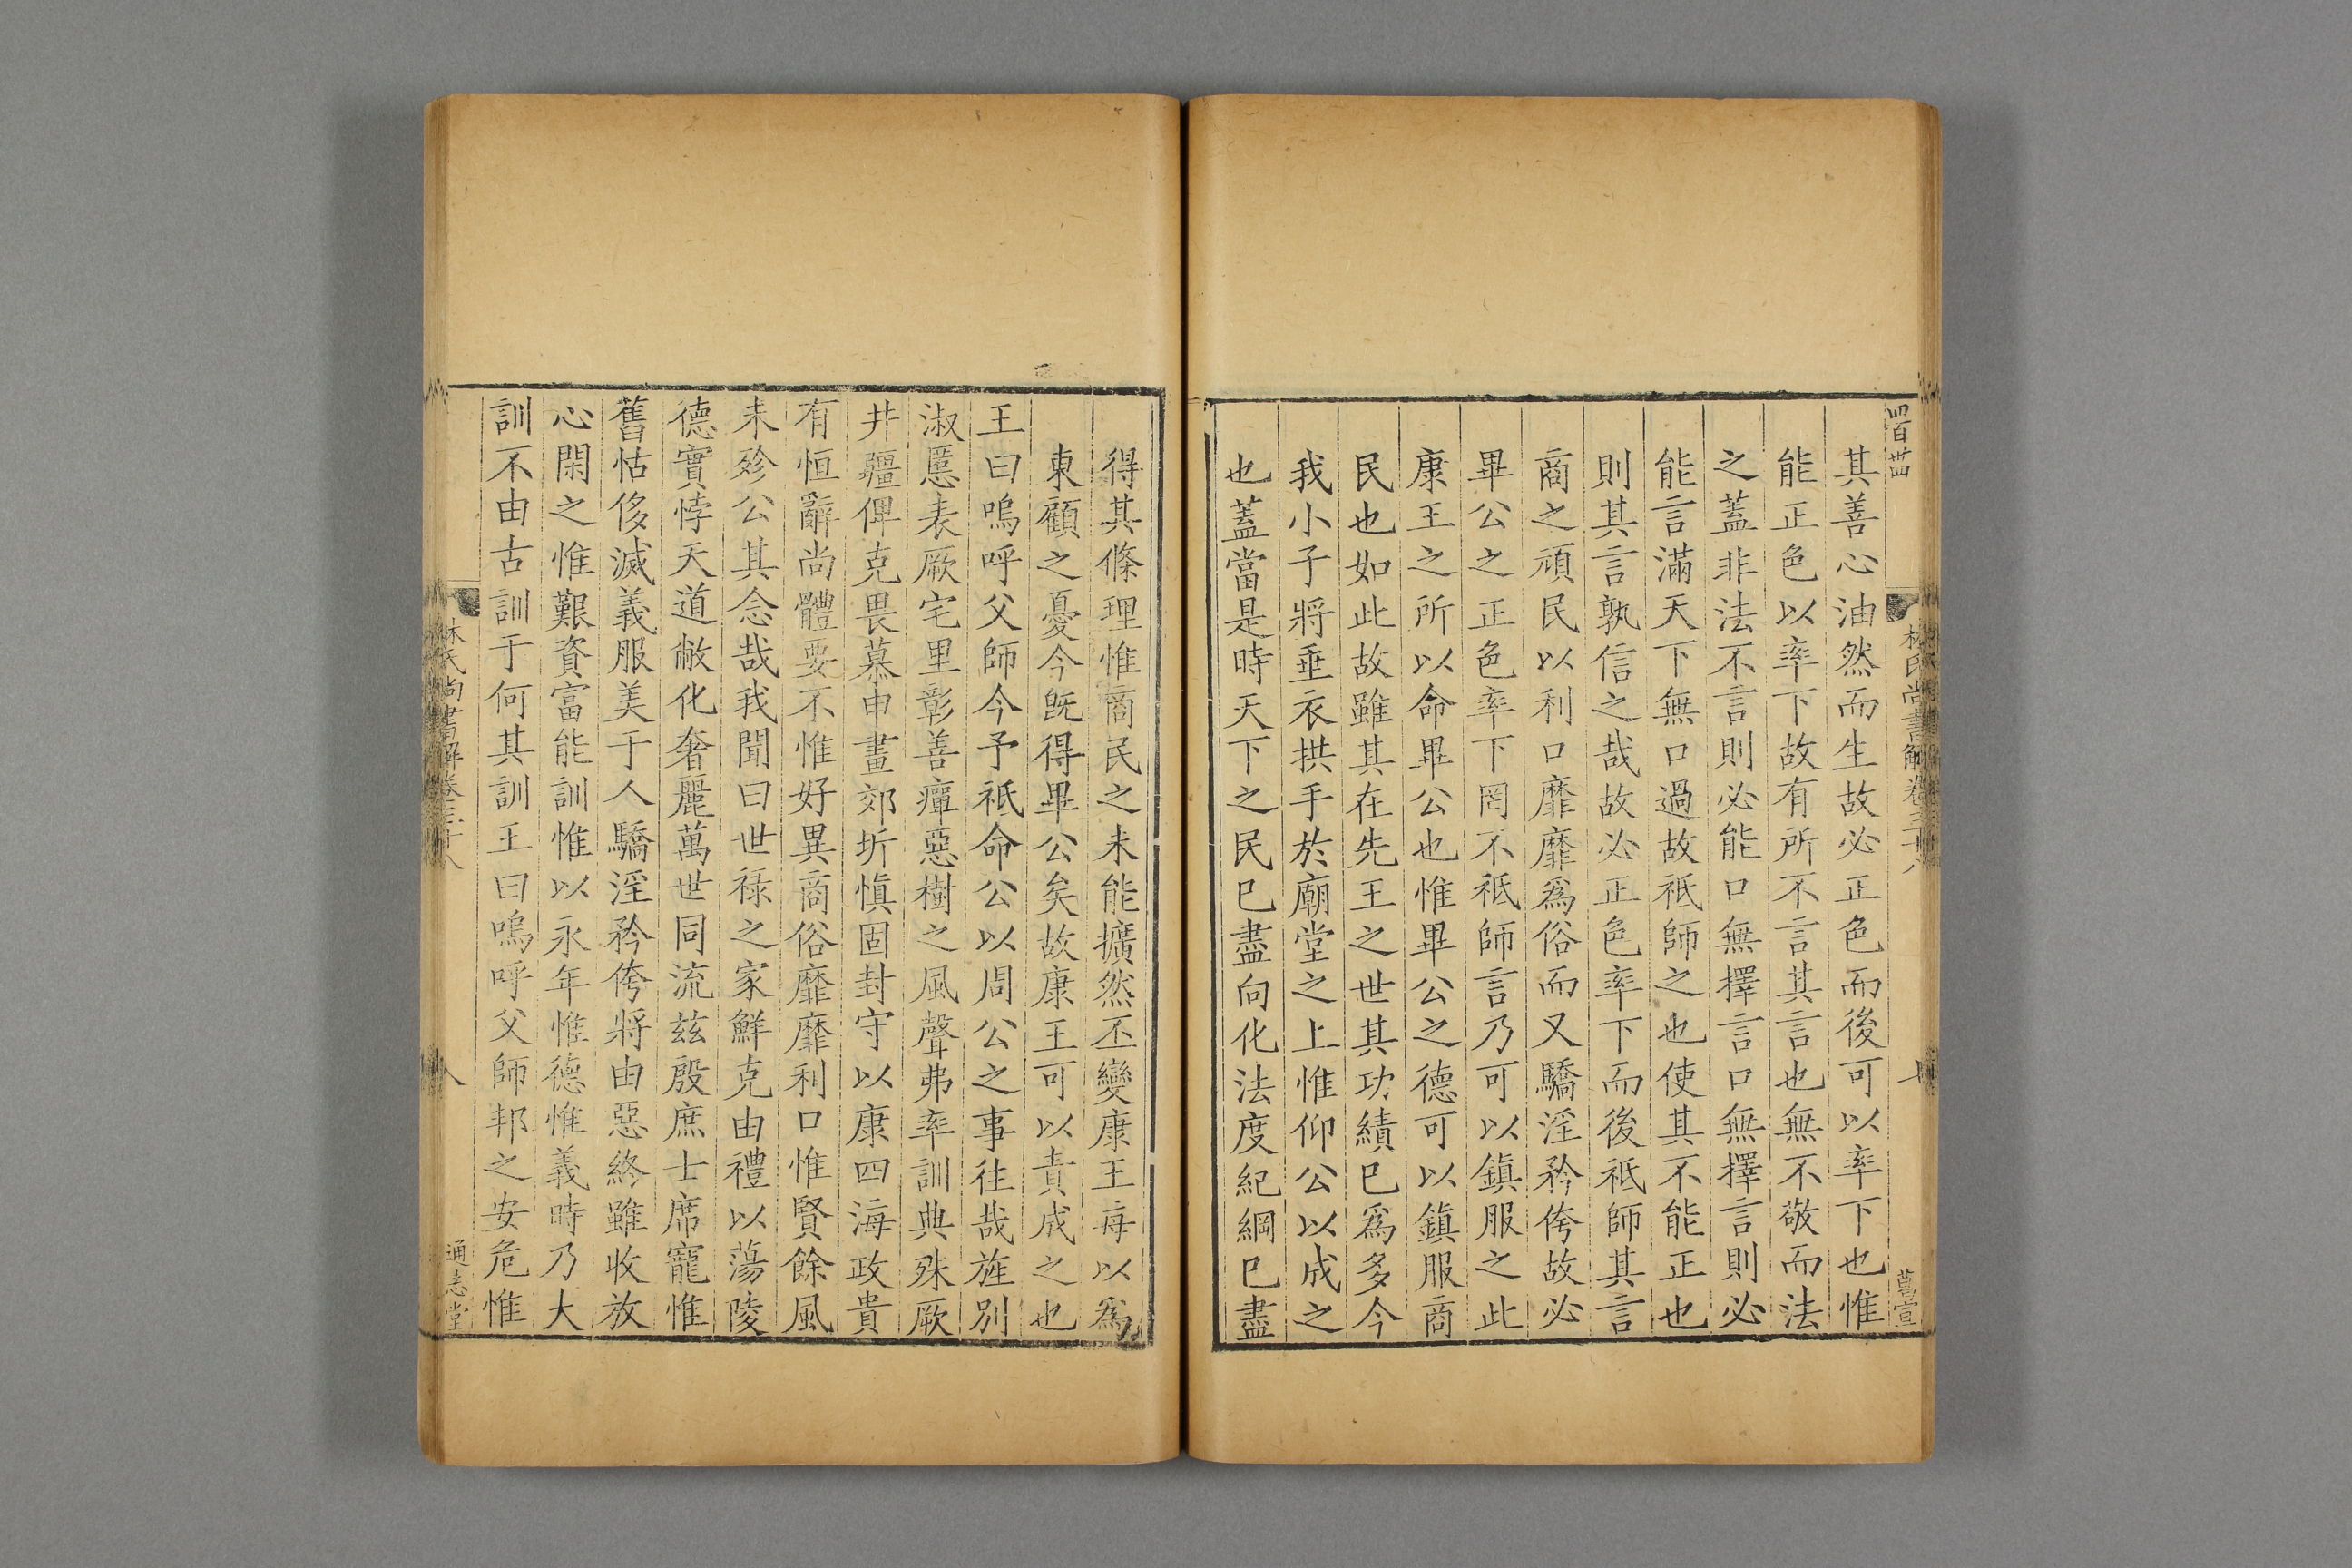 其善心油然而生故必正色而後可以率下也惟
能正色以率下故有所不言其言也無不敬而法
之蓋非法不言則必能口無擇言口無擇言則必
能言滿天下無口過故祗師之也使其不能正也
則其言孰信之哉故必正色率下而後祗師其言
商之頑民以利口靡靡爲俗而又驕淫矜侉故必
畢公之正色率下罔不祗師言乃可以鎮服之此
康王之所以命畢公也惟畢公之德可以鎮服商
民也如此故雖其在先王之世其功績已爲多今
我小子將垂衣拱手於廟堂之上惟仰公以成之
也蓋當是時天下之民已盡向化法度紀綱已盡
林氏尚書解卷三十八
七
得其條理惟商民之未能擴然丕變康王毎以爲
東顧之憂今旣得畢公矣故康王可以責成之也
王曰嗚呼父師今予祗命公以周公之事往哉旌別
淑慝表厥宅里彰善癉惡樹之風聲弗率訓典殊厥
井疆俾克畏慕申畫郊圻慎固封守以康四海政貴
有恒辭尚體要不惟好異商俗靡靡利口惟賢餘風
未殄公其念哉我聞曰世祿之家鮮克由禮以蕩陵
德實悖天道敝化奢麗萬世同流茲殷庶士席寵惟
舊怙侈滅義服美于人驕淫矜侉將由惡終雖收放
心閑之惟艱資富能訓惟以永年惟德惟義時乃大
訓不由古訓于何其訓王曰嗚呼父師邦之安危惟
林氏尚書解卷三十八
八
通志堂